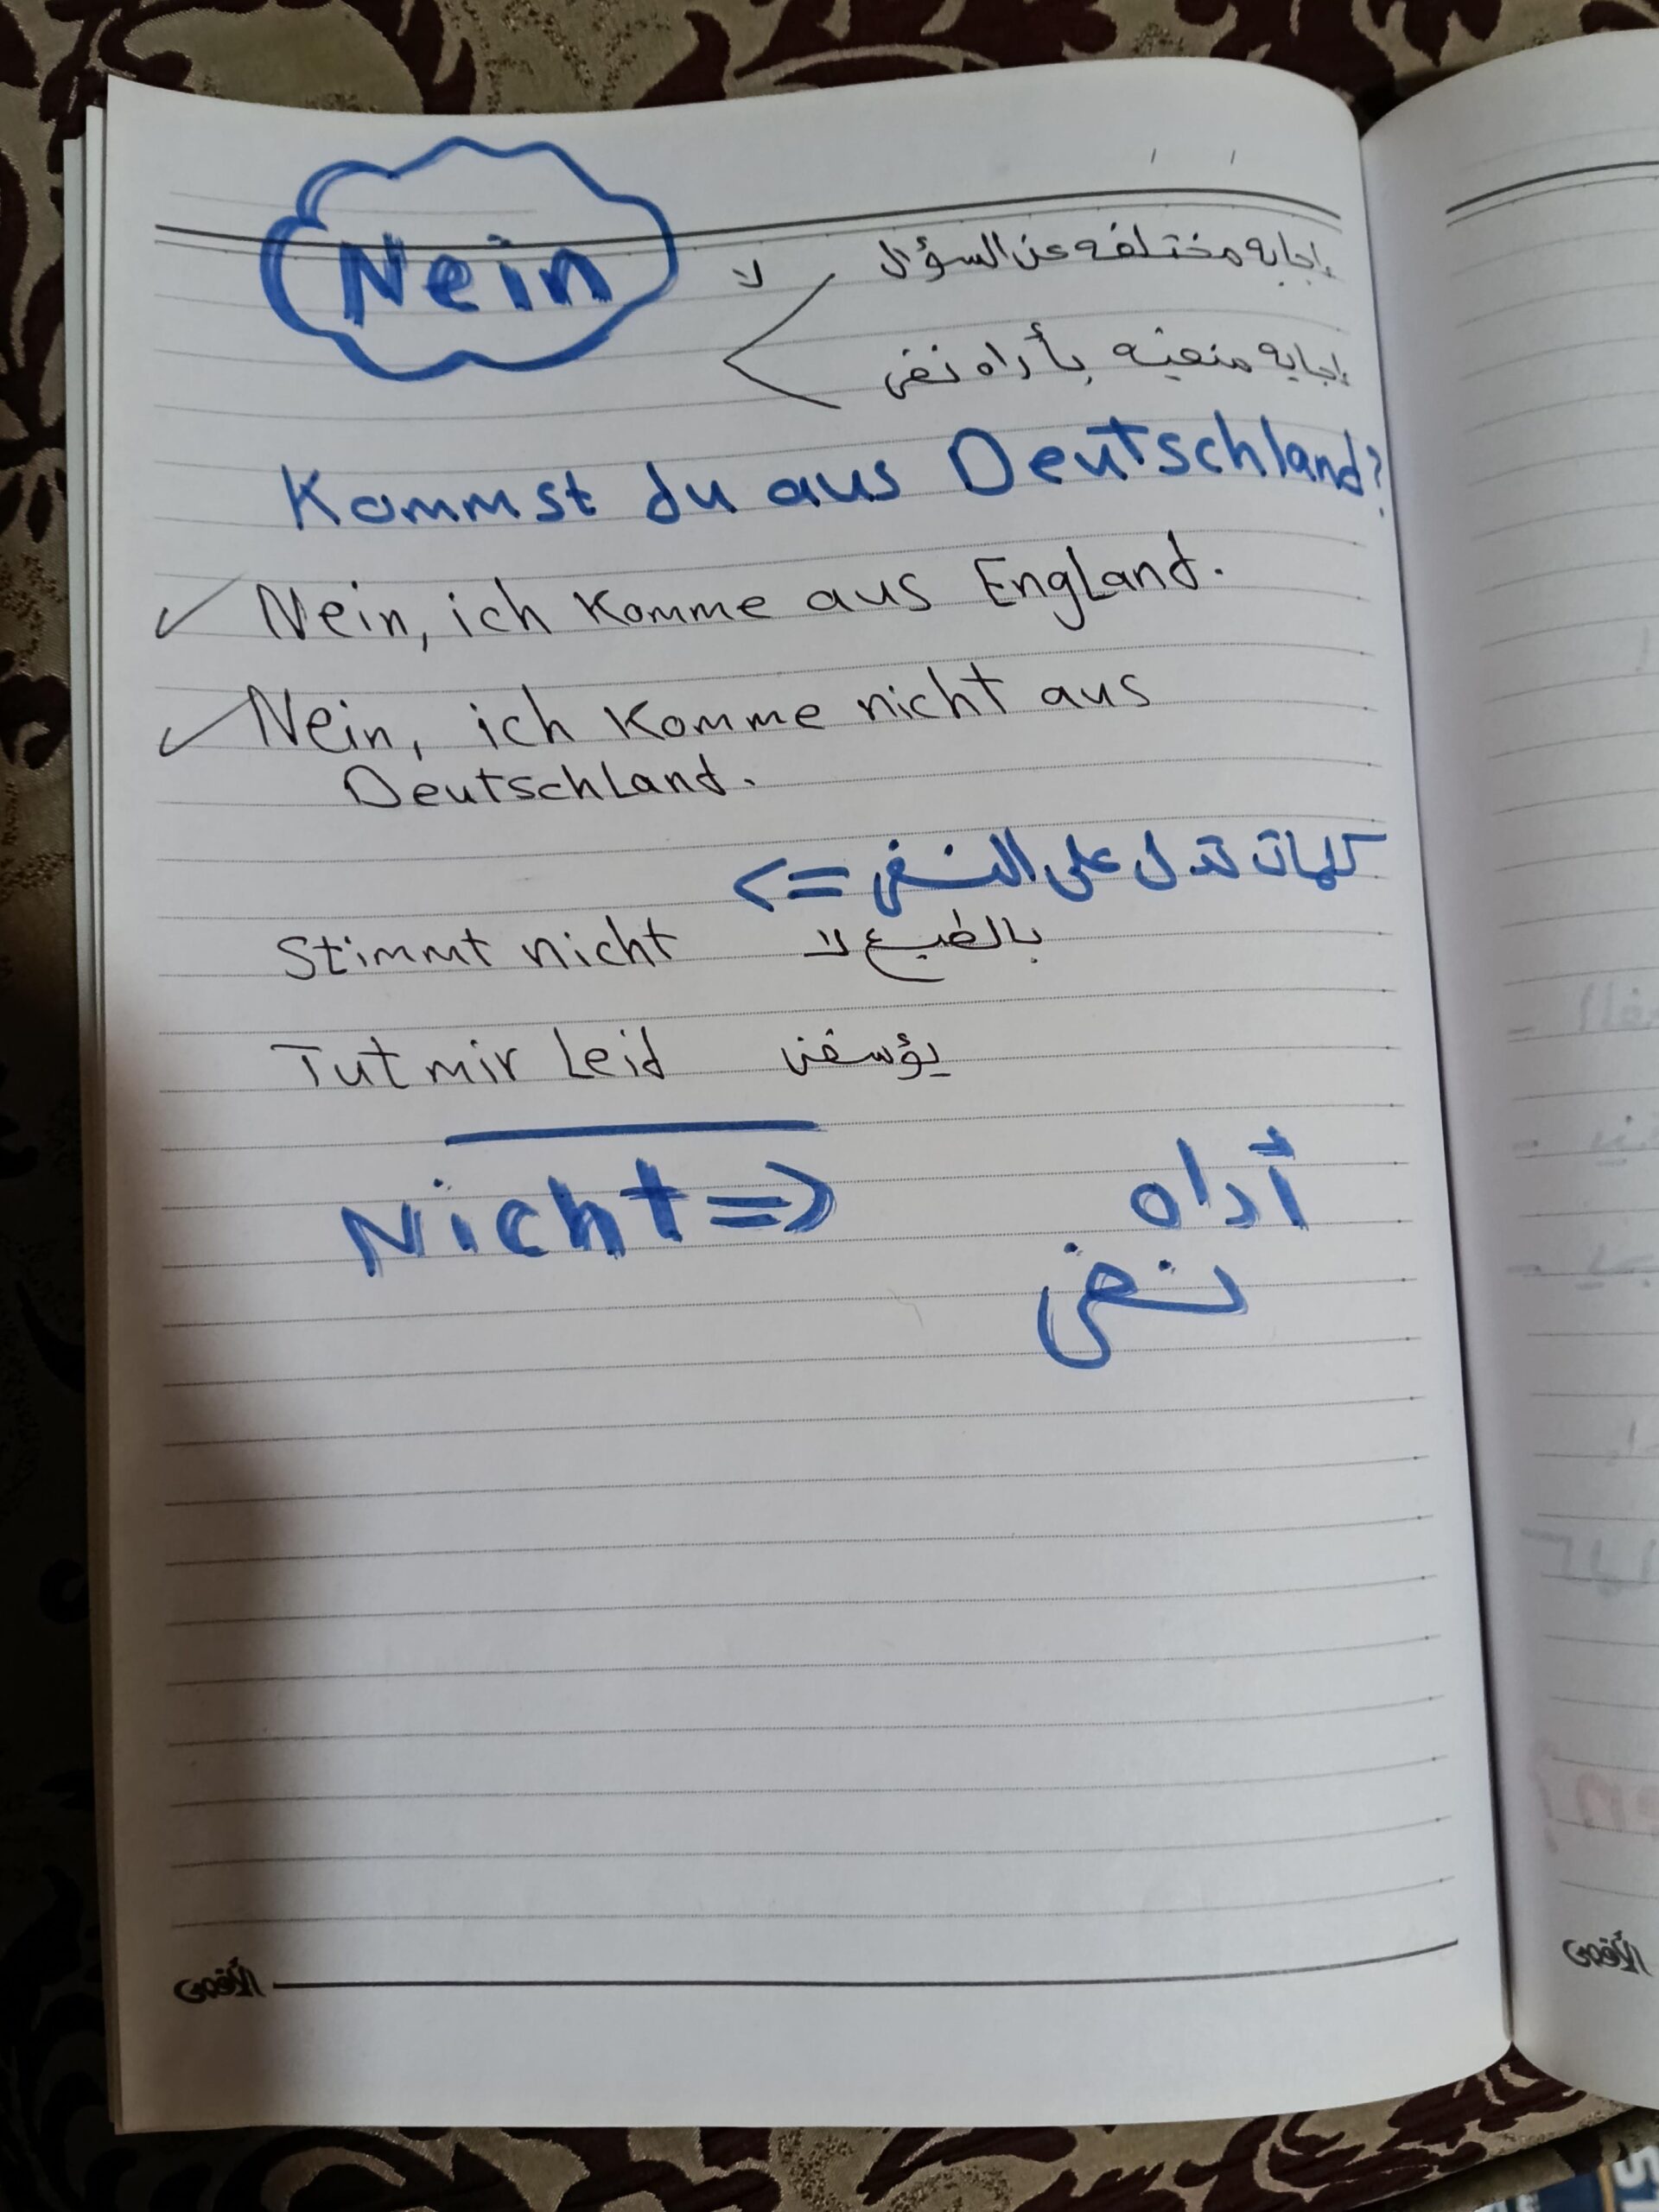 Nein لا إجابه مختلفه عن السؤال
إجابه منفيه بأداه نفى
Kommst du aus Deutschland?
✓ Nein, ich komme aus England.
✓ Nein, ich komme nicht aus
Deutschland.
كلمات تدل على النفى <=
Stimmt nicht بالطبع لا
Tut mir Leid يؤسفنى
Nicht => أداه
نفى
الأقصى
الأقصى